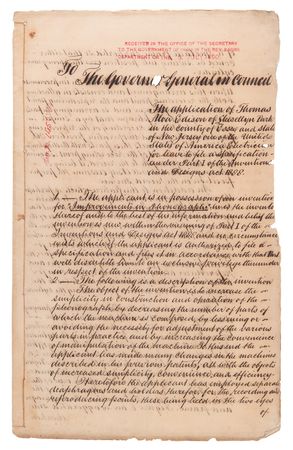 RECEIVED IN THE OFFICE OF THE SECRETARY
TO THE GOVERNMENT OF INDIA IN THE REV. &
DEPARTMENT ON THE
To The Governor General in Council
The application of Thomas
Alva Edison of Llewellyn Park
in the County of Essex and State
of New Jersey one of the United
States of America Electrician
for leave to file a specification
under Part I of the Inventions
and Designs act 1888.
1 — The applicant is in possession of an invention
for Improvements in Phonographs that is the inventor
thereof and to the best of his information and belief the
invention is new within the meaning of Part I of the
Inventions and Designs act 1888 and in
with which if the applicant is authorized to file a
specification and files it in accordance with that Part
will vest in him an exclusive privilege thereunder
in respect of the invention.
2 — The following is a description of the invention
The object of the invention is to increase the
simplicity in construction and operation of the
phonograph by decreasing the number of parts of
which the machine is composed, by lessening or
avoiding the necessity for adjustment of the various
parts in practice, and by increasing the convenience
of manipulation of the machine. To this end the
applicant has made many changes in the machines
described in his previous patents, all with the objects
of increased simplicity, convenience and efficiency
Heretofore the applicant has employed separate
diaphragms and holders therefor for the recording and
reproducing points, these being located in the two eyes
of